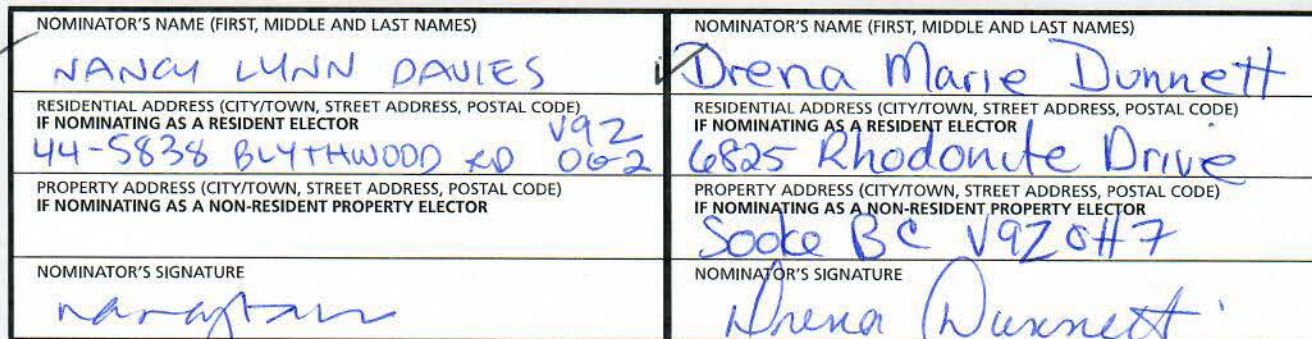 NOMINATOR'S NAME (FIRST, MIDDLE AND LAST NAMES)
NANCY LYNN DAVIES
RESIDENTIAL ADDRESS (CITY/TOWN, STREET ADDRESS, POSTAL CODE)
IF NOMINATING AS A RESIDENT ELECTOR
V9Z
44-5838 BLYTHWOOD RD 0G2
PROPERTY ADDRESS (CITY/TOWN, STREET ADDRESS, POSTAL CODE)
IF NOMINATING AS A NON-RESIDENT PROPERTY ELECTOR
NOMINATOR'S SIGNATURE
NOMINATOR'S NAME (FIRST, MIDDLE AND LAST NAMES)
Drena Marie Dunnett
RESIDENTIAL ADDRESS (CITY/TOWN, STREET ADDRESS, POSTAL CODE)
IF NOMINATING AS A RESIDENT ELECTOR
6825 Rhodonite Drive
PROPERTY ADDRESS (CITY/TOWN, STREET ADDRESS, POSTAL CODE)
IF NOMINATING AS A NON-RESIDENT PROPERTY ELECTOR
Sooke BC V9Z 0H7
NOMINATOR'S SIGNATURE
Drena Dunnett